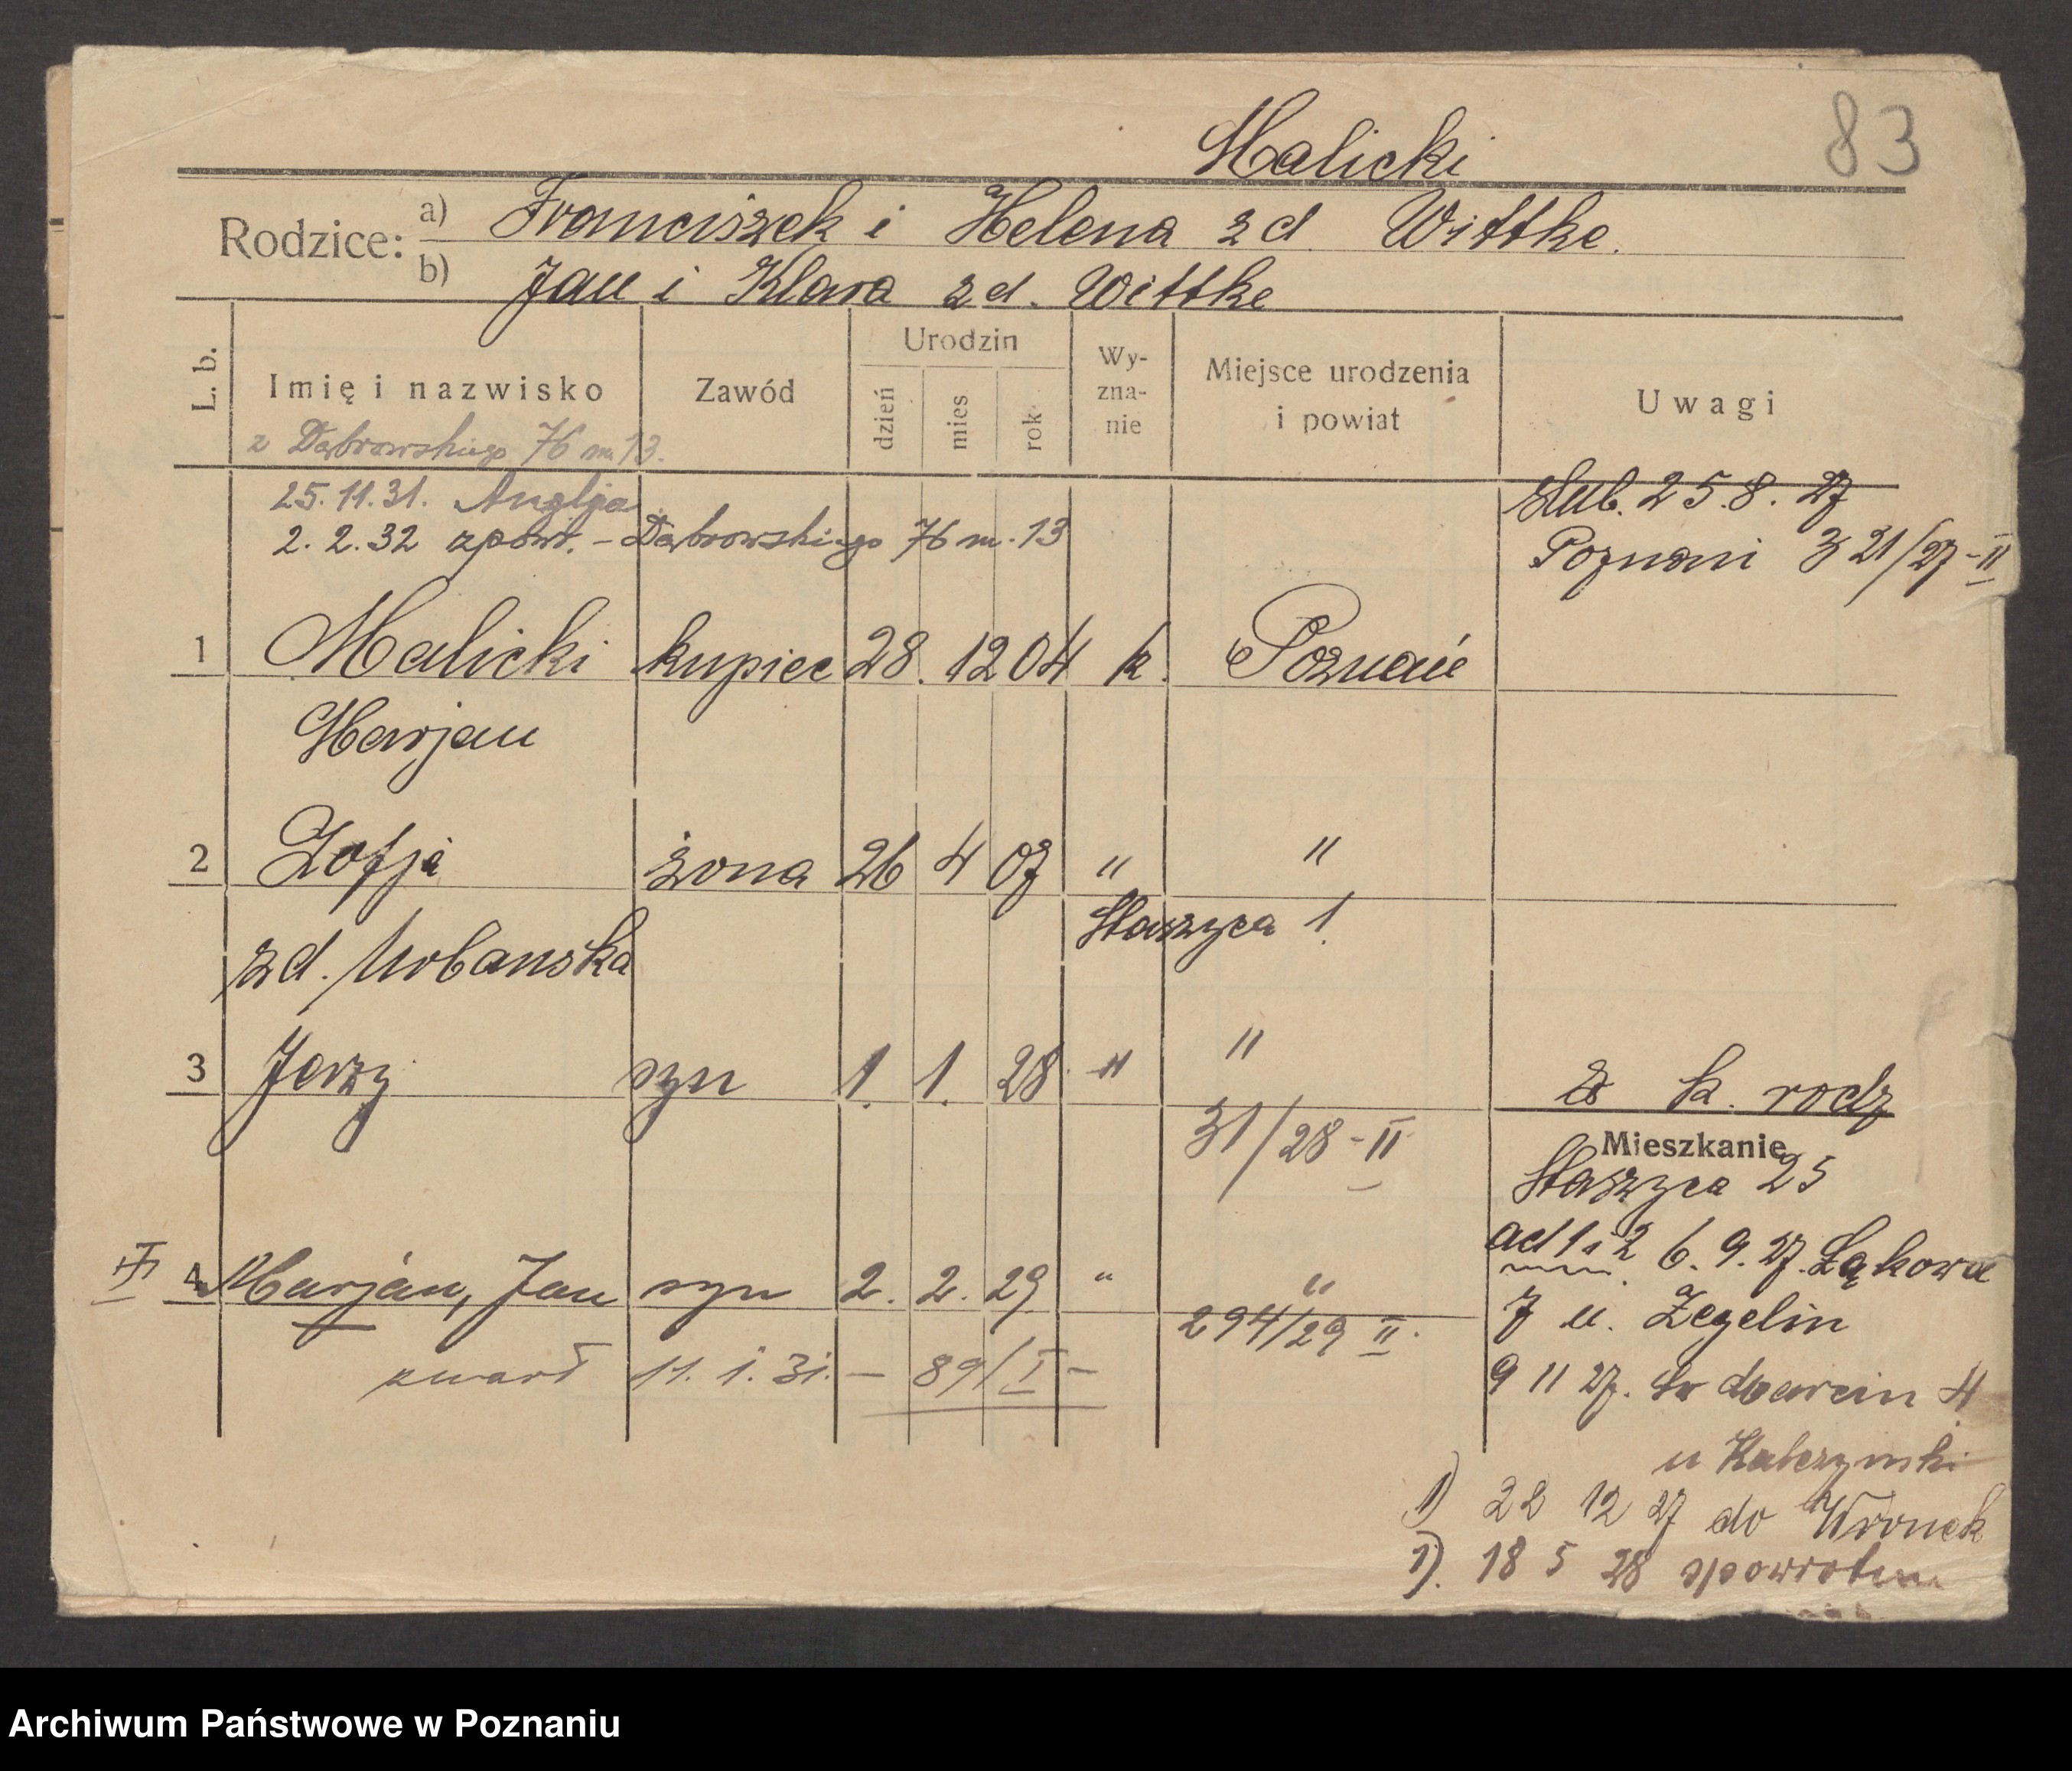 83
Malicki
Rodzice: a) Franciszek i Helena zd. Wittke.
b) Jan i Klara zd. Wittke
L. b. Imię i nazwisko Zawód Urodzin dzień mies rok Wyznanie Miejsce urodzenia i powiat Uwagi
z Dąbrowskiego 76 m 13.
25.11.31. Anglja
2.2.32 zpowr. - Dąbrowskiego 76 m. 13
ślub. 25.8.27
Poznań 321/27-II
1 Malicki kupiec 28. 12 04 k. Poznań
Marjan
2 Zofja żona 26 4 07 " "
Staszyca 1.
zd. Urbanska
3 Jerzy syn 1. 1. 28 " " k. rodz
31/28-II
Mieszkanie
Staszyca 25
ad 1 i 2 6.9.27. Łąkowa
7 u. Zegelin
4 Marjan, Jan syn 2. 2. 29 " "
294/29 II.
zmarł 11.1.31. - 89/I -
9 11 27. 4
u
1) 22 12 27 do Wronek
1). 18 5 28 spowrotem
Archiwum Państwowe w Poznaniu